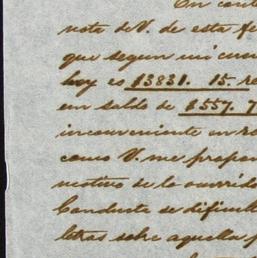 En cont
nota de V. de esta fe
que segun mi cuen
hoy es $3831. 15. re
em saldo de $557. 7
inconveniente en re
como V. me propon
motivo de lo ocurrido
Conducta se dificult
letras sobre aquella p